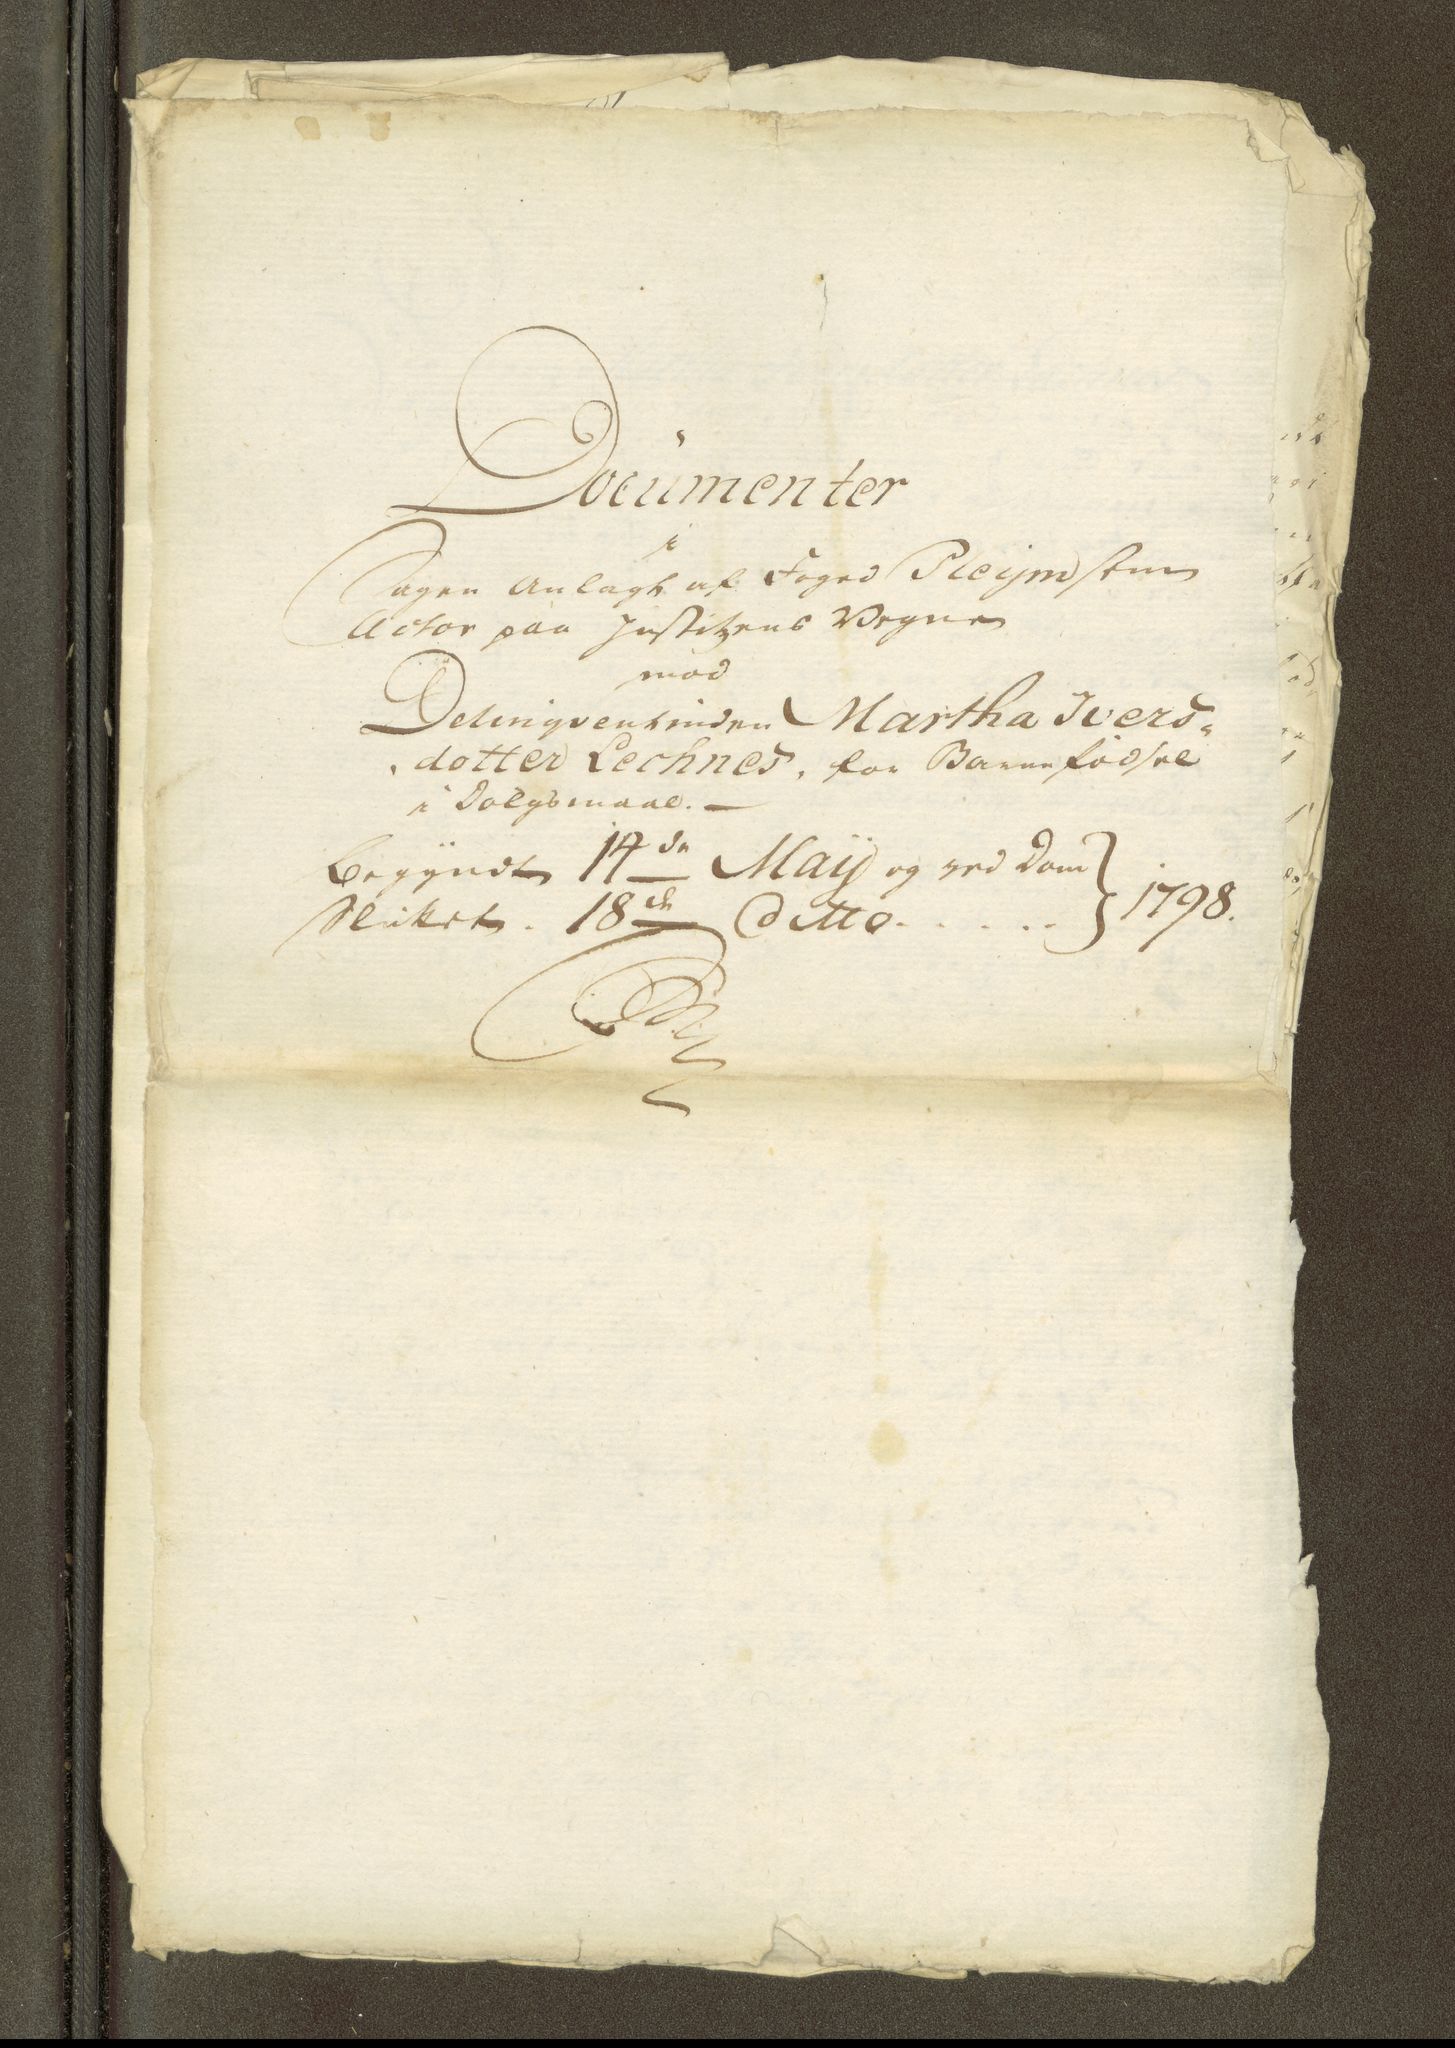 Documenter
i
Sagen Anlagt af Foged Pleijm som
Actor paa Justitzens Vegne
mod
Delinqventinden Martha Ivers-
dotter Lechnes, for Barnefødsel
i Dølgsmaal. —
Begÿndt 14de Maij og ved Dom
Sluttet . 18de Ditto . . . . . . } 1798.